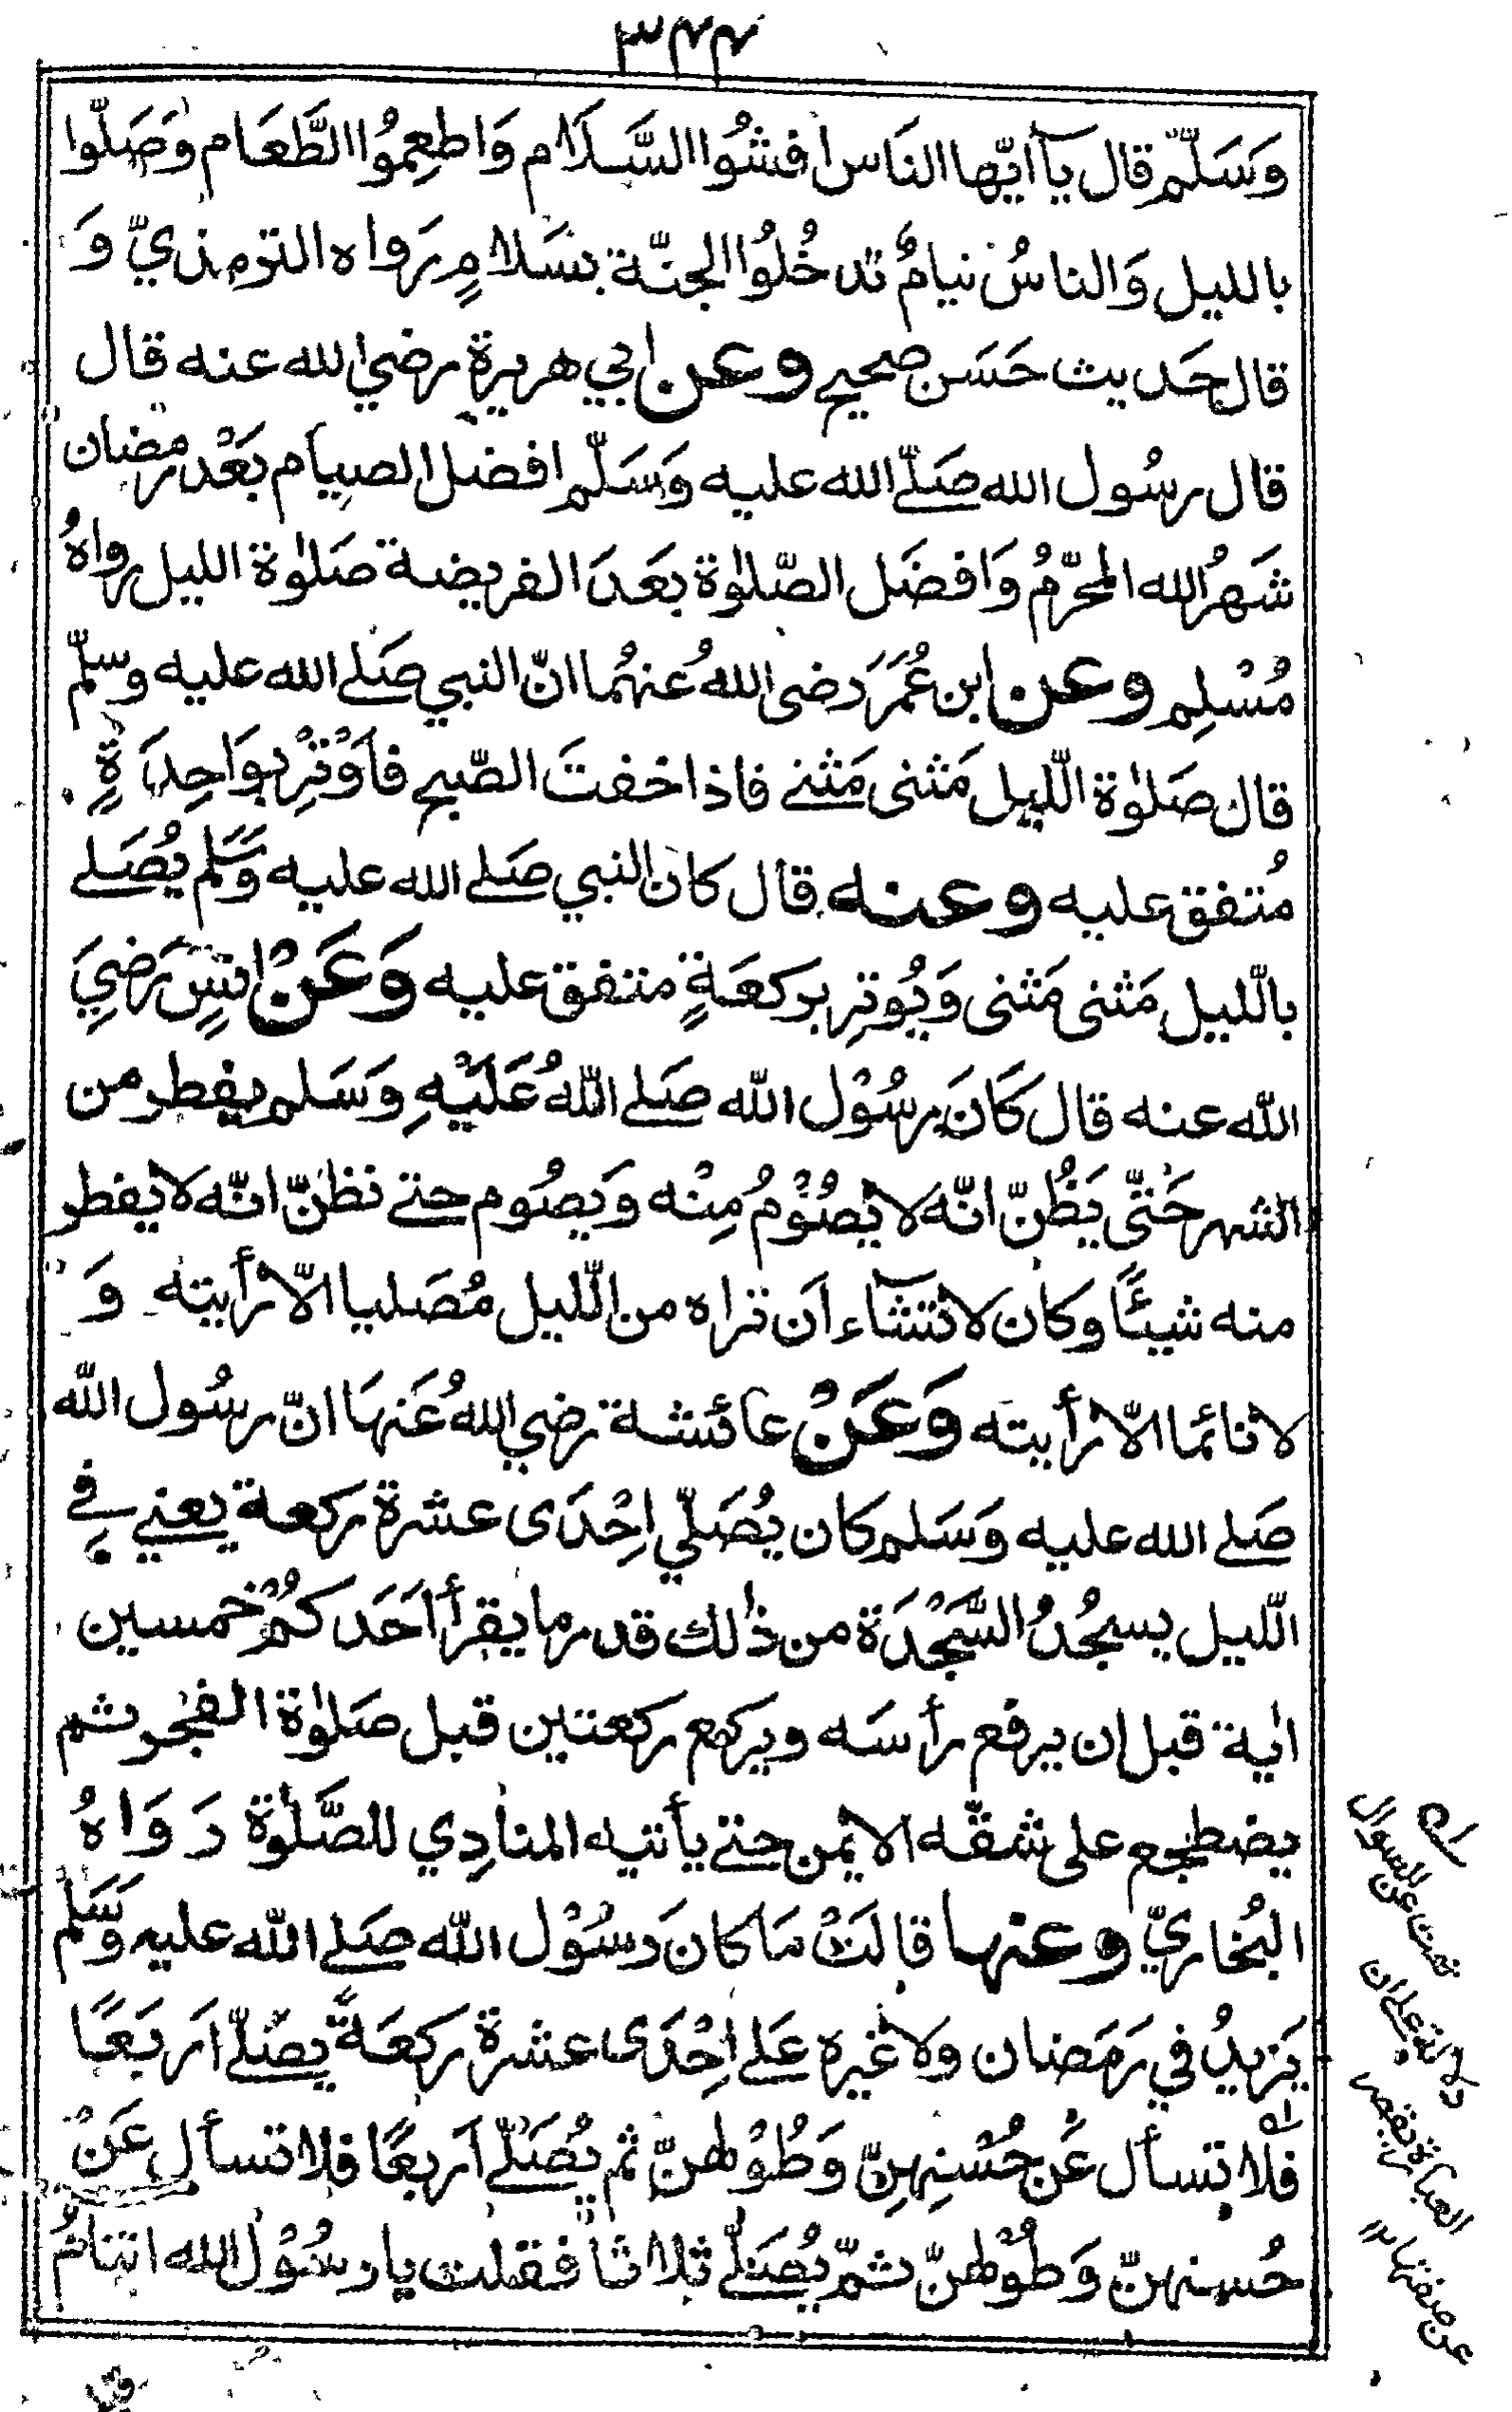 ٣٤٤
وَسَلَّم قال يآ ايّها الناس افشُوا السَّلَام وَاطعِمُوا الطَّعَام وَصَلّوا
بالليل وَالناسُ نيامٌ تدخُلُوا الجنّة بسَلامٍ رَواه الترمذيّ وَ
قال حَديث حَسَن صحيح وعن ابي هريرة رضي الله عنه قال
قال رسُول الله صَلّے الله عليه وَسَلّم افضل الصيام بَعْد رمضان
شَهرُ الله المحرّمُ وَافضَل الصّلوٰة بعَدَ الفريضة صَلوٰة الليل رواهُ
مُسْلِم وعن ابن عُمَرَ رضى اللهُ عنهُما انّ النبي صَلے الله عليه وسلّم
قال صَلوٰة اللّيل مَثنى مَثنے فاذا خفتَ الصّبح فأوْتِرْ بوَاحِدَةٍ
مُتفق عليه وعنه قال كان النبي صَلے الله عليه وَسَّلم يُصَلے
باللّيل مَثنى مَثنى وَيُوتِر بركعَةٍ متفق عليه وَعَنْ انسٍ رَضيَ
الله عنه قال كَانَ رسُوْل الله صَلے اللّهُ عَلَيْهِ وَسَلم يفطر من
الشهر حَتّى يَظُنّ انّه لا يصُوْمُ مِنْه ويَصُوم حتے نظنّ انّه لا يفطر
منه شيئًا وكان لا تشآء اَن تراه من اللّيل مُصَليا الّا رأيته وَ
لا نائما الّا رأيته وَعَنْ عائشة رضي اللهُ عَنهَا انّ رسُول الله
صَلے الله عليه وَسَلم كان يُصَلّي اِحْدَى عشرة ركعة يعني فے
اللّيل يسجُدُ السَّجْدَة من ذٰلك قدر ما يقرأ اَحَدكمُ خمسين
اٰية قبل ان يرفع رأسَه ويركع ركعتين قبل صَلوٰة الفجر ثم
يضطجع على شقّه الايمن حتے يأتيه المنادِي للصَّلوٰة رَوَاهُ
البُخاريّ وعنها قالَتْ مَا كانَ رسُوْل الله صَلے الله عليه وَسَّلم
يَزيدُ في رَمَضان ولا غيره عَلے اِحْدَى عشرة ركعَةً يصَلّے اَربَعًا
فلا تسأل عَن حُسْنِهِنّ وَطُوْلهنّ ثم يُصَلّے اَربعًا فلا تسأل عَنْ
حُسنهنّ وَطُوْلهنّ ثمّ يُصَلّے ثلاثا فقلت يا رسُوْل الله اتنامُ
عن السوال
العبارة
عن صفتها